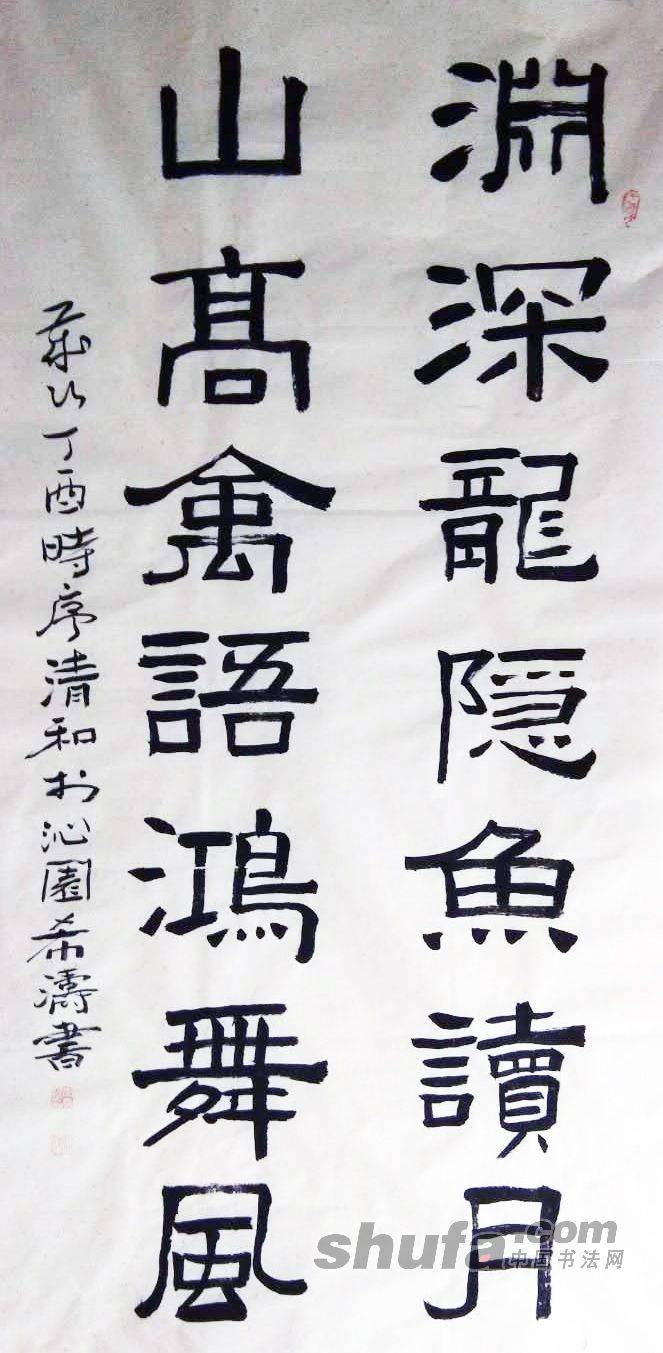 淵深龍隐魚讀月
山髙禽語鴻舞風
歲次丁酉時序清和於沁園希濤書
shufa.com
中国书法网